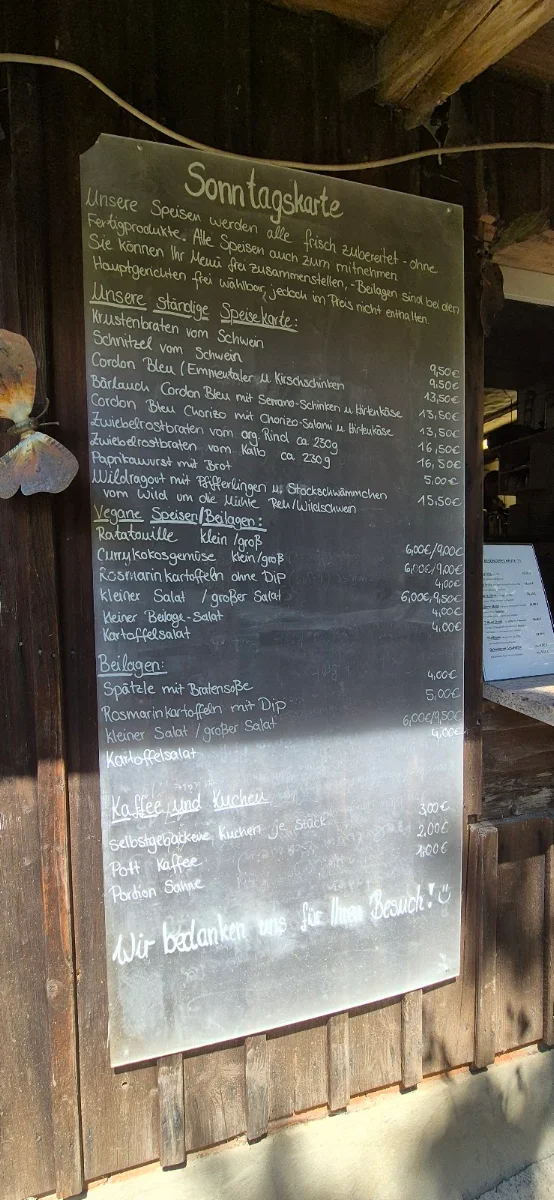 Sonntagskarte
Unsere Speisen werden alle frisch zubereitet - ohne
Fertigprodukte. Alle Speisen auch zum mitnehmen
Sie können Ihr Menü frei zusammenstellen, - Beilagen sind bei den
Hauptgerichten frei wählbar, jedoch im Preis nicht enthalten.
Unsere ständige Speisekarte:
Krustenbraten vom Schwein 9,50€
Schnitzel vom Schwein 9,50€
Cordon Bleu / Emmentaler u. Kirschschinken 13,50€
Bärlauch Cordon Bleu mit Serrano-Schinken u. Hirtenkäse 13,50€
Cordon Bleu Chorizo mit Chorizo-Salami u. Hirtenkäse 13,50€
Zwiebelrostbraten vom arg. Rind ca. 230g 16,50€
Zwiebelrostbraten vom Kalb ca 230g 16,50€
Paprikawurst mit Brot 5.00€
Wildragout mit Pfifferlingen u. Stockschwämmchen 15,50€
vom Wild um die Mühle Reh/Wildschwein
Vegane Speisen/Beilagen:
Ratatouille klein/groß 6,00€/9,00€
Currykokosgemüse klein/groß 6,00€/9,00€
Rosmarinkartoffeln ohne Dip 4,00€
kleiner Salat / großer Salat 6,00€/9,50€
kleiner Beilage-Salat 4,00€
Kartoffelsalat 4,00€
Beilagen:
Spätzle mit Bratensoße 4,00€
Rosmarinkartoffeln mit Dip 5,00€
kleiner Salat / großer Salat 6,00€/9,50€
Kartoffelsalat 4,00€
Kaffee und Kuchen
Selbstgebackene Kuchen je Stück 3,00€
Pott Kaffee 2,00€
Portion Sahne 1,00€
Wir bedanken uns für Ihren Besuch! ☺